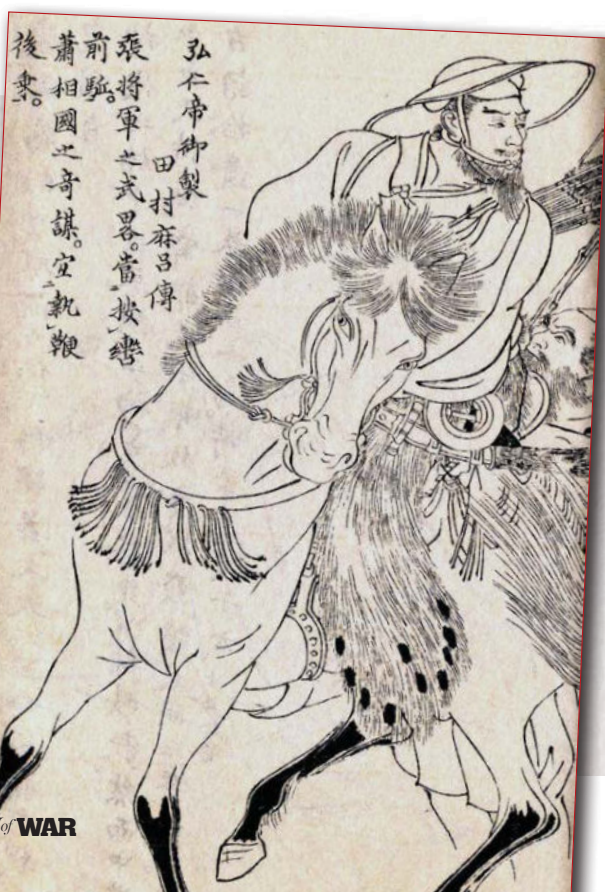 弘仁帝御製
田村麻呂傳
張將軍之武畧。當按轡
前駈。
蕭相國之奇謀。宜執鞭
後乗。
of WAR